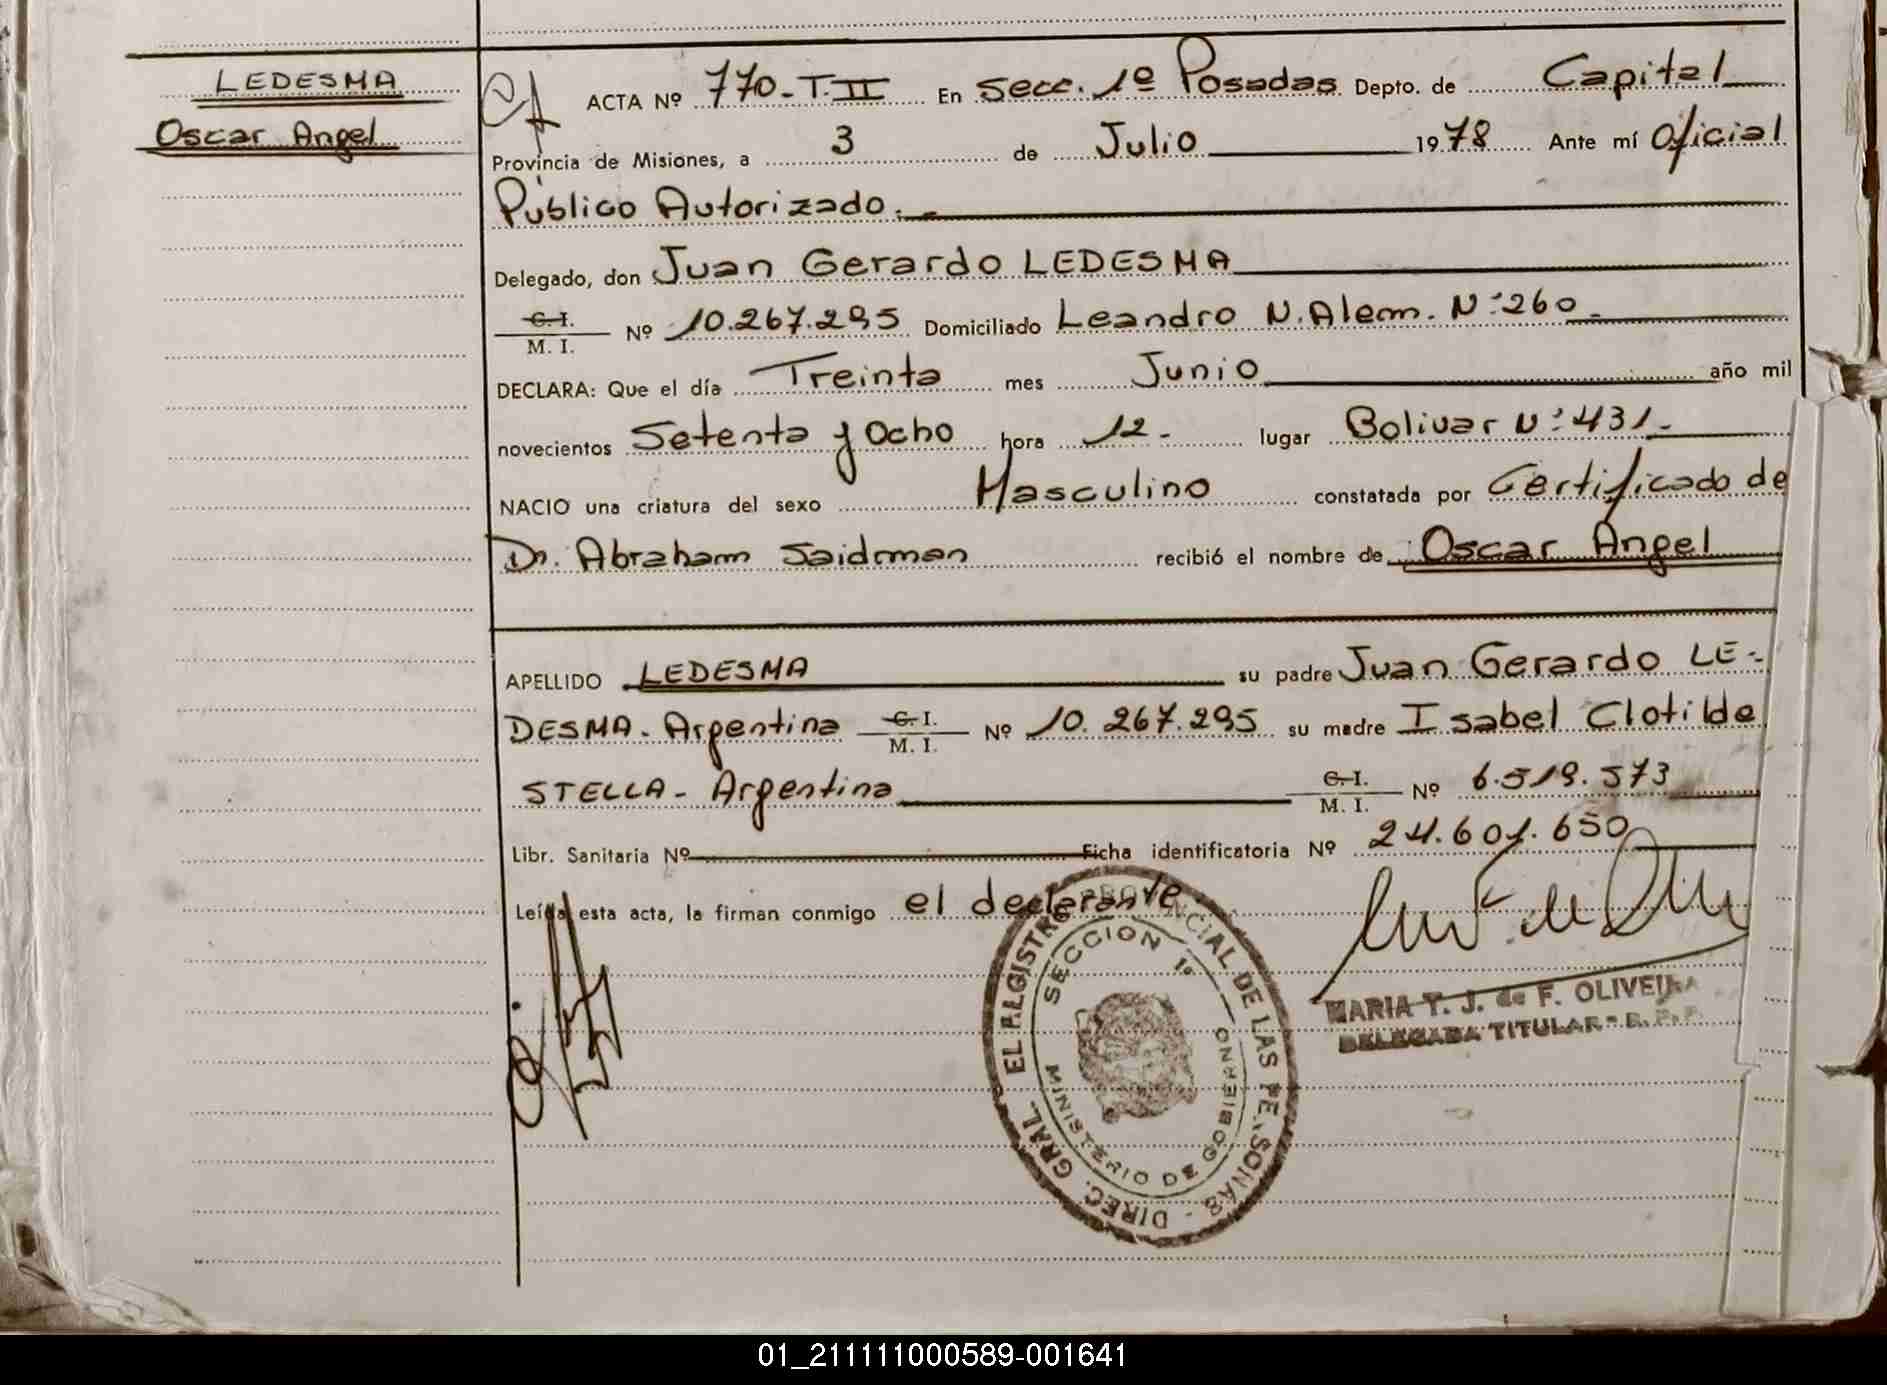 LEDESMA
Oscar Angel
ACTA Nº 770-T.II En Secc. 1º Posadas Depto. de Capital
Provincia de Misiones, a 3 de Julio 1978 Ante mí Oficial
Público Autorizado.-
Delegado, don Juan Gerardo LEDESMA
C.I. / M.I. Nº 10.267.295 Domiciliado Leandro N. Alem. Nº 260.-
DECLARA: Que el día Treinta mes Junio año mil
novecientos Setenta y Ocho hora 12.- lugar Bolivar Nº 431.-
NACIO una criatura del sexo Masculino constatada por Certificado de
Dr. Abraham Saidman recibió el nombre de Oscar Angel
APELLIDO LEDESMA su padre Juan Gerardo LE-
DESMA - Argentina C.I. / M.I. Nº 10.267.295 su madre Isabel Clotilde
STELLA - Argentina C.I. / M.I. Nº 6.519.573
Libr. Sanitaria Nº Ficha identificatoria Nº 24.601.650
Leída esta acta, la firman conmigo el declarante
DIREC. GRAL. PROVINCIAL DE LAS PERSONAS
SECCION 1º
MINISTERIO DE GOBIERNO
MARIA T. J. de F. OLIVEIRA
DELEGADA TITULAR - R. P. P.
01_211111000589-001641